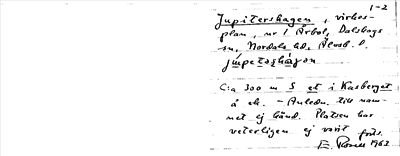 1-2
Jupitershagen, virkes-
plan, nr 1 Årbol, Dalskogs
sn, Nordals hd, Älvsb. l.
jímpetəshágən
C:a 300 m S et i Kasberget
å ek. - Anledn. till nam-
net ej känd. Platsen har
veterligen ej varit forts.
E. 1962